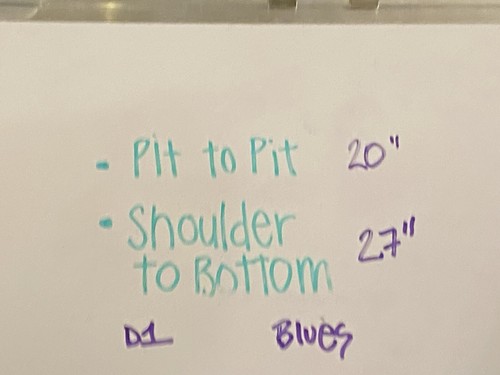 - Pit to Pit 20"
• Shoulder
to Bottom 27"
D1 Blues